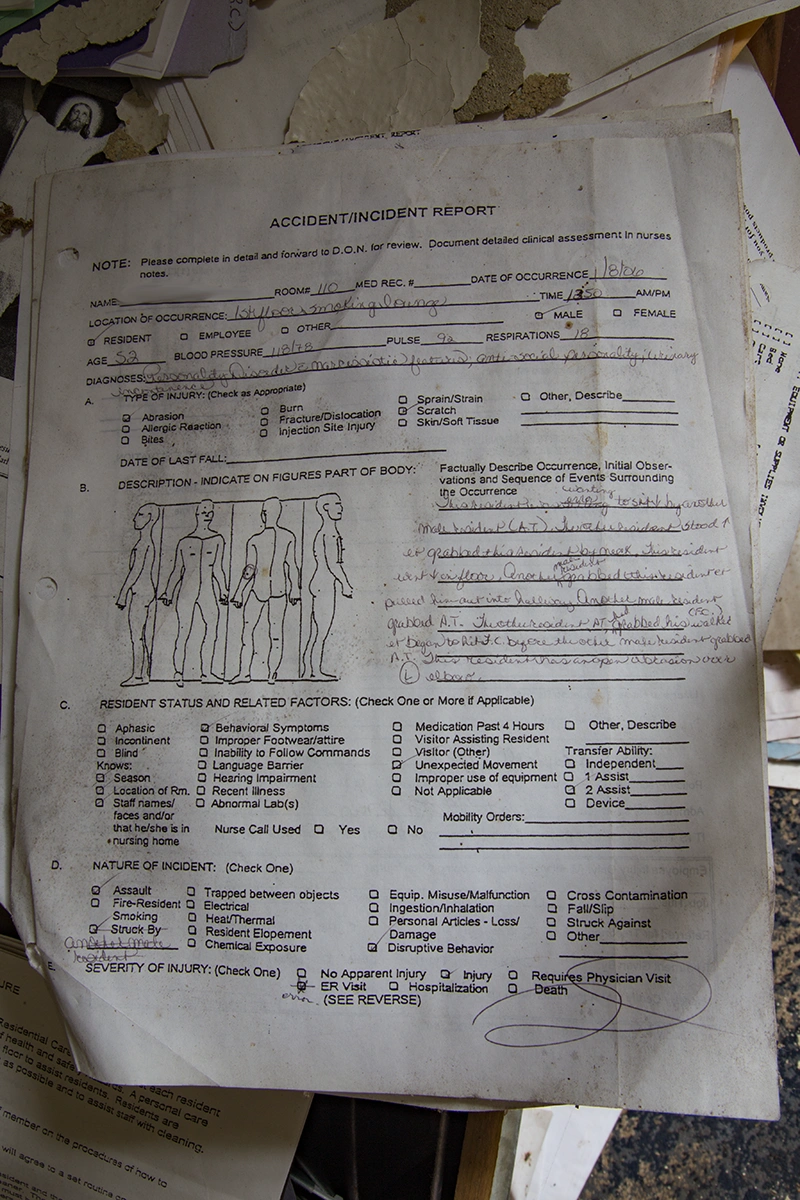 ACCIDENT/INCIDENT REPORT
NOTE: Please complete in detail and forward to D.O.N. for review. Document detailed clinical assessment in nurses
notes.
NAME: ROOM# 110 MED REC. # DATE OF OCCURRENCE 1/8/06
LOCATION OF OCCURRENCE: 1st floor smoking lounge TIME 1350 AM/PM
RESIDENT EMPLOYEE OTHER MALE FEMALE
AGE 52 BLOOD PRESSURE 118/78 PULSE 92 RESPIRATIONS 18
DIAGNOSES: Personality Disorder narcissistic features, anti-social personality, urinary
incontinence
A. TYPE OF INJURY: (Check as Appropriate)
Abrasion Burn Sprain/Strain Other, Describe
Allergic Reaction Fracture/Dislocation Scratch
Bites Injection Site Injury Skin/Soft Tissue
DATE OF LAST FALL:
B. DESCRIPTION - INDICATE ON FIGURES PART OF BODY:
Factually Describe Occurrence, Initial Obser-
vations and Sequence of Events Surrounding
the Occurrence
This resident to by another
male resident (A.T.) The other resident stood ↑
et grabbed this resident by neck. This resident
went to floor. Another male resident grabbed this resident et
pulled him out into hallway. Another male resident
grabbed A.T. The other resident AT grabbed his (F.C.) walker
et began to hit F.C. before the other male resident grabbed
A.T. This resident has an open abrasion over
(L) elbow.
C. RESIDENT STATUS AND RELATED FACTORS: (Check One or More if Applicable)
Aphasic Behavioral Symptoms Medication Past 4 Hours Other, Describe
Incontinent Improper Footwear/attire Visitor Assisting Resident
Blind Inability to Follow Commands Visitor (Other) Transfer Ability:
Knows: Language Barrier Unexpected Movement Independent
Season Hearing Impairment Improper use of equipment 1 Assist
Location of Rm. Recent Illness Not Applicable 2 Assist
Staff names/ Abnormal Lab(s) Device
faces and/or Mobility Orders:
that he/she is in Nurse Call Used Yes No
nursing home
D. NATURE OF INCIDENT: (Check One)
Assault Trapped between objects Equip. Misuse/Malfunction Cross Contamination
Fire-Resident Electrical Ingestion/Inhalation Fall/Slip
Smoking Heat/Thermal Personal Articles - Loss/ Struck Against
Struck By Resident Elopement Damage Other
another male Chemical Exposure Disruptive Behavior
resident
E. SEVERITY OF INJURY: (Check One) No Apparent Injury Injury Requires Physician Visit
ER Visit Hospitalization Death
error (SEE REVERSE)
each resident
Residential Care
A personal care
of health and safety
floor to assist residents. Residents are
as possible and to assist staff with cleaning.
member on the procedures of how to
will agree to a set routine on